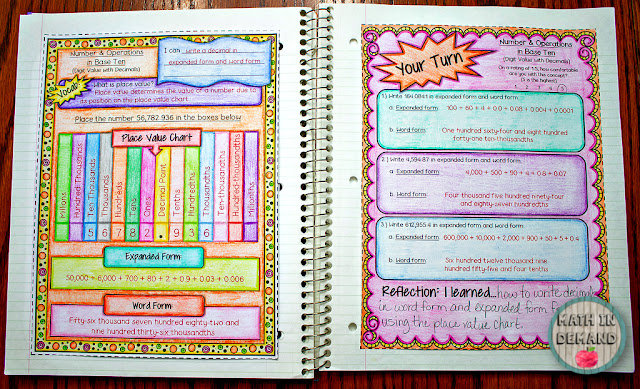 Number & Operations
in Base Ten
(Digit Value with Decimals)
I can write a decimal in
expanded form and word form.
Vocab
What is place value?
Place value determines the value of a number due
to its position on the place value chart.
Place the number 56,782.936 in the boxes below.
Place Value Chart
Millions
Hundred-Thousands
Ten-Thousands
Thousands
Hundreds
Tens
Ones
Decimal Point
Tenths
Hundredths
Thousandths
Ten-Thousandths
Hundred-Thousandths
Millionths
5 6 7 8 2 . 9 3 6
Expanded Form
50,000 + 6,000 + 700 + 80 + 2 + 0.9 + 0.03 + 0.006
Word Form
Fifty-six thousand seven hundred eighty-two and
nine hundred thirty-six thousandths
Your Turn
Number & Operations
in Base Ten
(Digit Value with Decimals)
On a rating of 1-5, how comfortable
are you with this concept?
(5 is the highest)
1 2 3 4 5
1.) Write 164.0841 in expanded form and word form.
a. Expanded form: 100 + 60 + 4 + 0.0 + 0.08 + 0.004 + 0.0001
b. Word form: One hundred sixty-four and eight hundred
forty-one ten-thousandths
2.) Write 4,594.87 in expanded form and word form.
a. Expanded form: 4,000 + 500 + 90 + 4 + 0.8 + 0.07
b. Word form: Four thousand five hundred ninety-four
and eighty-seven hundredths
3.) Write 612,955.4 in expanded form and word form.
a. Expanded form: 600,000 + 10,000 + 2,000 + 900 + 50 + 5 + 0.4
b. Word form: Six hundred twelve thousand nine
hundred fifty-five and four tenths
Reflection: I learned...how to write decimals
in word form and expanded form
using the place value chart.
MATH IN
DEMAND